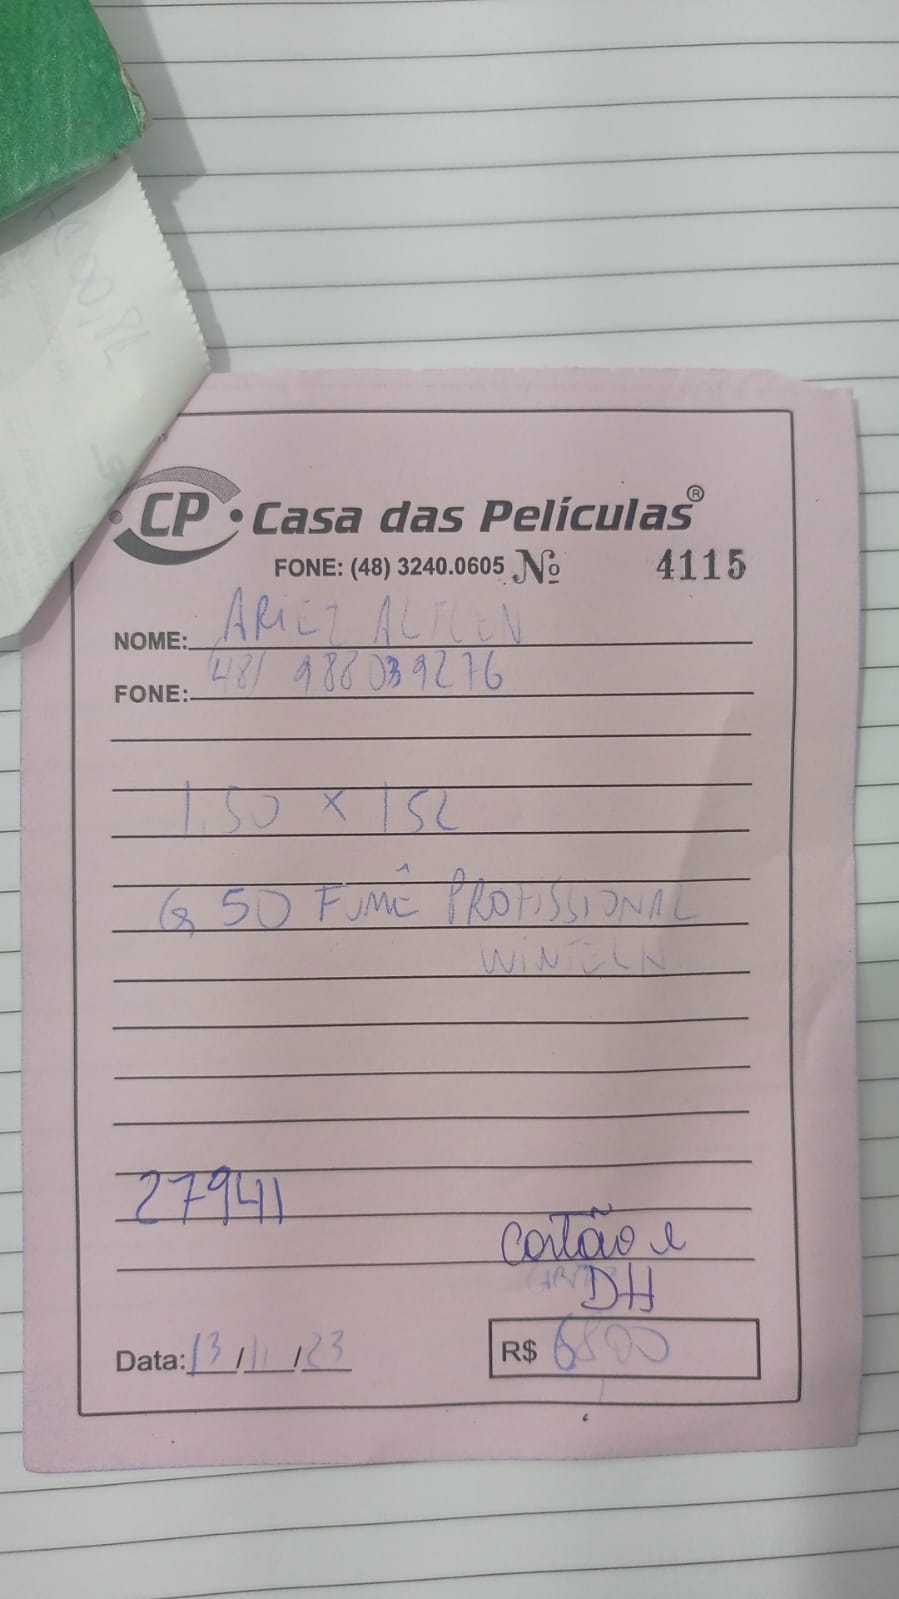 CP Casa das Películas®
FONE: (48) 3240.0605 Nº 4115
NOME: ARIEZ
FONE: 48/ 988039276
1.50 x 152
G 50 FUMÊ PROFISSIONAL
27941
Cartão e
DH
Data: 13/11/23 R$ 6800